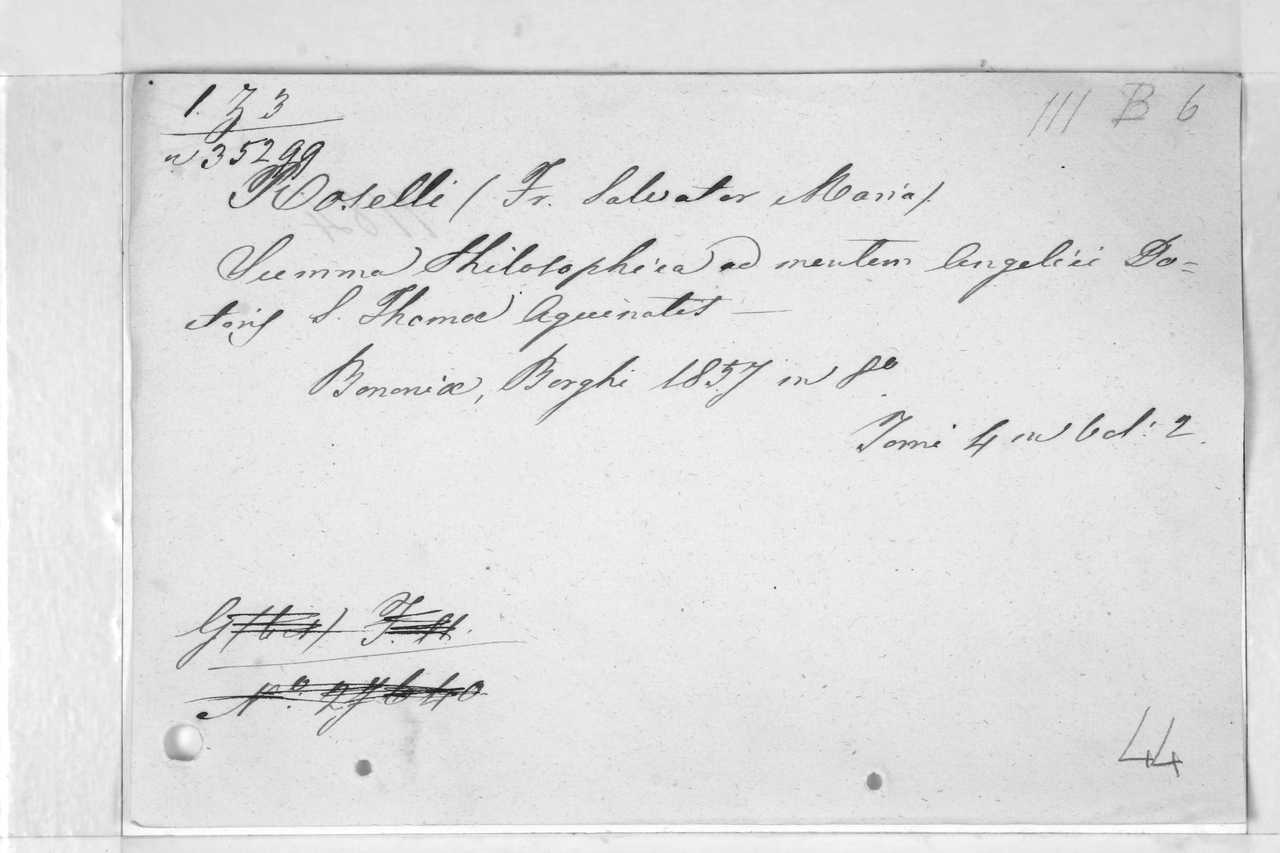 1. Z 3
n 35299
III B 6
Roselli (Fr. Salvator Maria).
Summa Philosophica ad mentem Angelici Do=
ctoris S. Thomæ Aquinatis —
Bononiæ, Borghi 1857 in 8º
Tomi 4 in vol: 2.
Nº. 27640
44